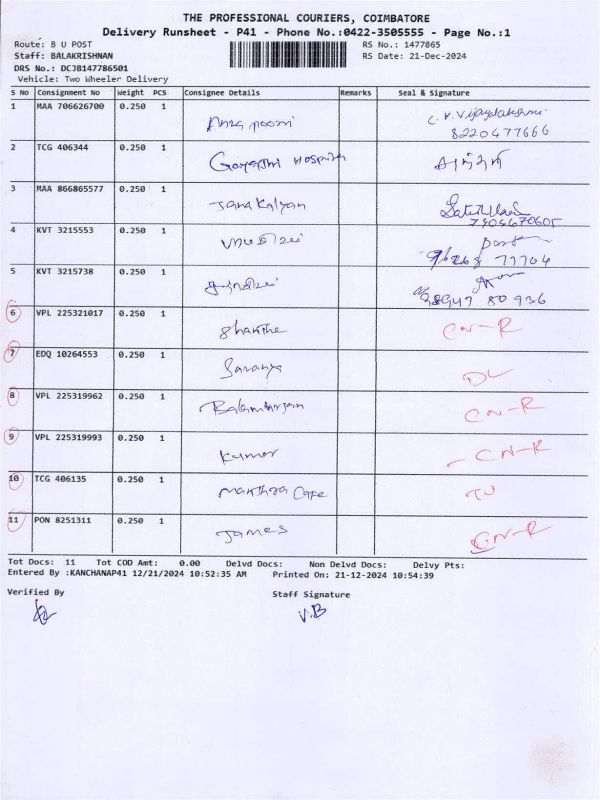 THE PROFESSIONAL COURIERS, COIMBATORE
Delivery Runsheet - P41 - Phone No.:0422-3505555 - Page No.:1
Route: B U POST RS No.: 1477865
Staff: BALAKRISHNAN RS Date: 21-Dec-2024
DRS No.: DCJB147786501
Vehicle: Two Wheeler Delivery
S No Consignment No Weight PCS Consignee Details Remarks Seal & Signature
1 MAA 706626700 0.250 1 C.V. Vijayalakshmi
8220477666
2 TCG 406344 0.250 1 Gayathri Hospital
3 MAA 866865577 0.250 1 Jana Kalyan
7904670605
4 KVT 3215553 0.250 1
5 KVT 3215738 0.250 1
98947 80936
6 VPL 225321017 0.250 1 CN-R
7 EDQ 10264553 0.250 1 Saranya DL
8 VPL 225319962 0.250 1 CN-R
9 VPL 225319993 0.250 1 Kumar CN-R
10 TCG 406135 0.250 1 Cafe
11 PON 8251311 0.250 1 James CN-R
Tot Docs: 11 Tot COD Amt: 0.00 Delvd Docs: Non Delvd Docs: Delvy Pts:
Entered By :KANCHANAP41 12/21/2024 10:52:35 AM Printed On: 21-12-2024 10:54:39
Verified By Staff Signature
V.B